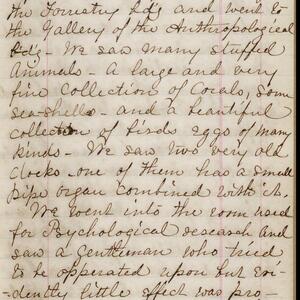 the Forrestry Bdg and went to
the Gallery of the Anthropological
Bdg - We saw many stuffed
Animals - A large and very
fine collection of Corals, some
sea-shells - and a beautiful
collection of birds eggs of many
kinds - We saw two very old
clocks - one of them has a small
pipe organ combined with it.
We went into the room used
for Psychological research and
saw a Gentleman who tried
to be opperated upon but evi-
dently little effect was pro-